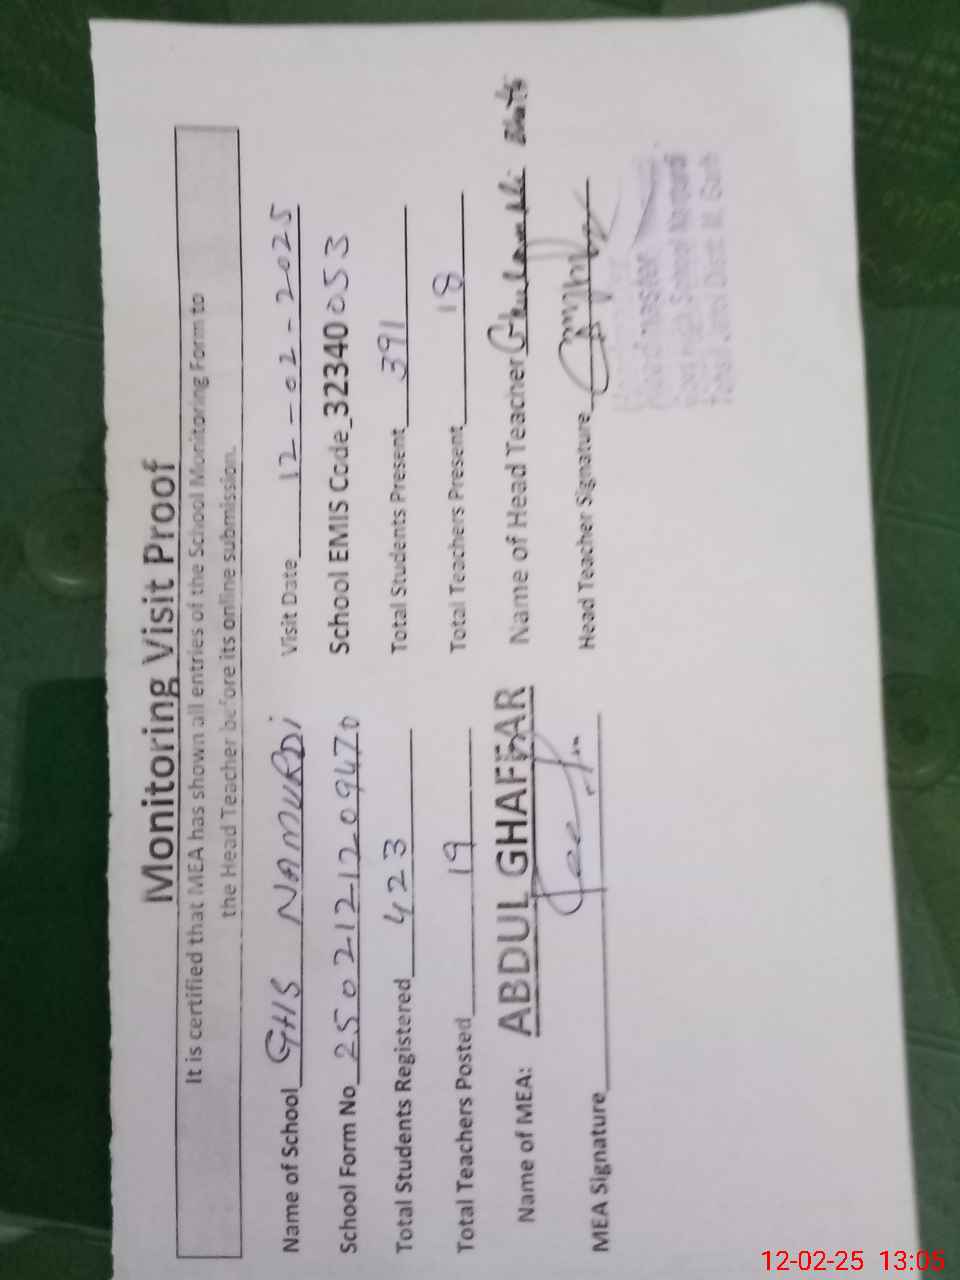 Monitoring Visit Proof
It is certified that MEA has shown all entries of the School Monitoring Form to
the Head Teacher before its online submission.
Name of School GHS NAMURDi Visit Date 12-02-2025
School Form No 2502121209470 School EMIS Code 32340053
Total Students Registered 423 Total Students Present 391
Total Teachers Posted 19 Total Teachers Present 18
Name of MEA: ABDUL GHAFFAR Name of Head Teacher Ghulam Ali
MEA Signature Head Teacher Signature
Headmaster
High School
12-02-25 13:05